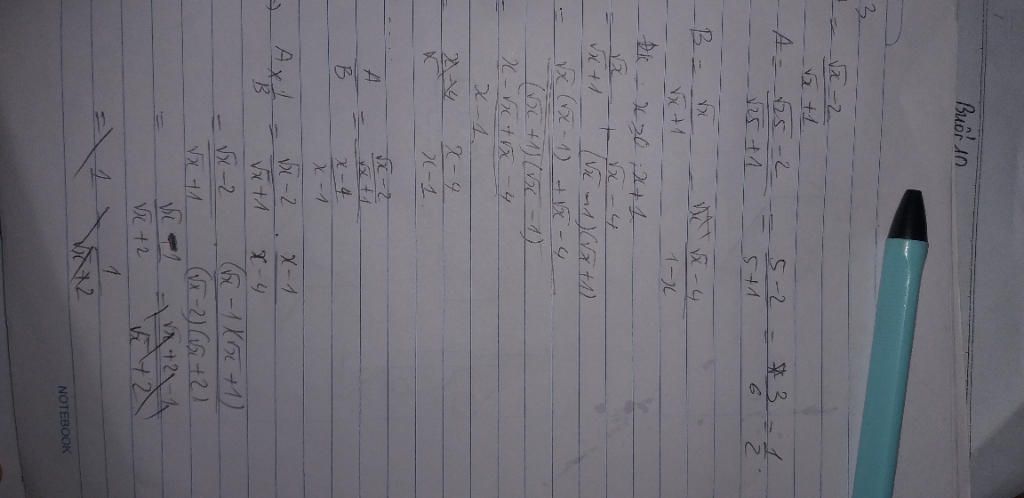 Buổi 10
3
= \frac{\sqrt{x}-2}{\sqrt{x}+1}
A = \frac{\sqrt{25}-2}{\sqrt{25}+1} = \frac{5-2}{5+1} = \frac{3}{6} = \frac{1}{2}.
B = \frac{\sqrt{x}}{\sqrt{x}+1} \frac{\sqrt{x}-4}{1-x}
x ≥ 0 ; x ≠ 1
= \frac{\sqrt{x}}{\sqrt{x}+1} + \frac{\sqrt{x}-4}{(\sqrt{x}-1)(\sqrt{x}+1)}
= \frac{\sqrt{x}(\sqrt{x}-1)+\sqrt{x}-4}{(\sqrt{x}+1)(\sqrt{x}-1)}
= \frac{x-\sqrt{x}+\sqrt{x}-4}{x-1}
= \frac{x-4}{x-1}
\frac{A}{B} = \frac{\frac{\sqrt{x}-2}{\sqrt{x}+1}}{\frac{x-4}{x-1}}
A × \frac{1}{B} = \frac{\sqrt{x}-2}{\sqrt{x}+1} . \frac{x-1}{x-4}
= \frac{\sqrt{x}-2}{\sqrt{x}+1} . \frac{(\sqrt{x}-1)(\sqrt{x}+1)}{(\sqrt{x}-2)(\sqrt{x}+2)}
= \frac{\sqrt{x}-1}{\sqrt{x}+2} = \frac{\sqrt{x}+2-1}{\sqrt{x}+2}
= 1 \frac{1}{\sqrt{x}+2}
NOTEBOOK